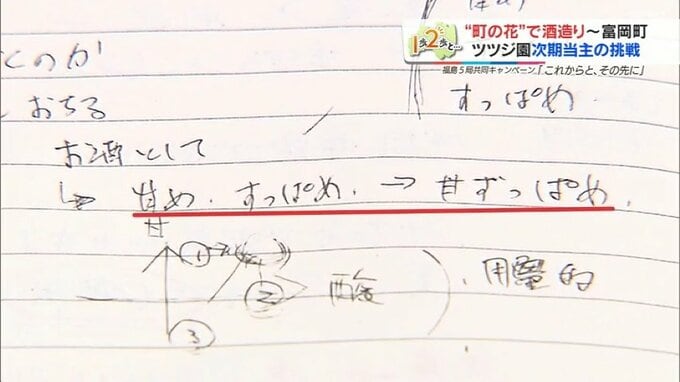 "町の花"で酒造り~富岡町
1歩2歩と…
ツツジ園次期当主の挑戦
福島5局共同キャンペーン「これからと、その先に」
くのか
すっぱめ
おちる
お酒として
↳ 甘め、すっぱめ、→ 甘ずっぱめ、
甘
①
②
酸
③
用量的